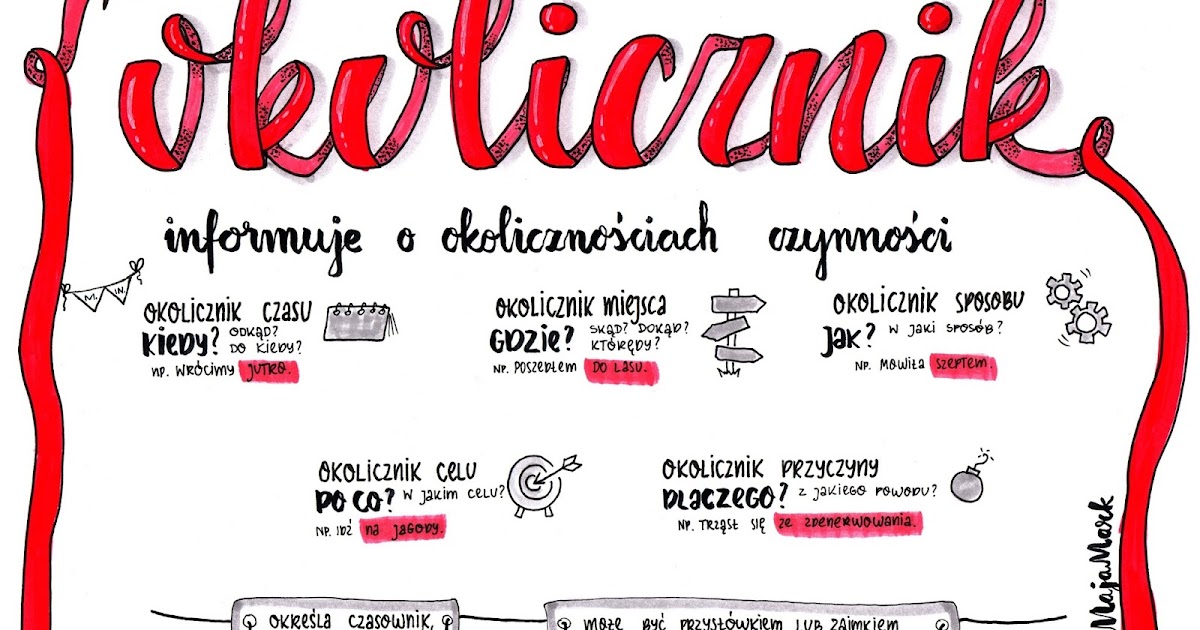 okolicznik
informuje o okolicznościach czynności
M. IN.
OKOLICZNIK CZASU
KIEDY? ODKĄD?
DO KIEDY?
NP. WRÓCIMY JUTRO.
OKOLICZNIK MIEJSCA
GDZIE? SKĄD? DOKĄD?
KTÓRĘDY?
NP. POSZEDŁEM DO LASU.
OKOLICZNIK SPOSOBU
JAK? W JAKI SPOSÓB?
NP. MÓWIŁA SZEPTEM.
OKOLICZNIK CELU
PO CO? W JAKIM CELU?
NP. IDŹ NA JAGODY.
OKOLICZNIK PRZYCZYNY
DLACZEGO? Z JAKIEGO POWODU?
NP. TRZĄSŁ SIĘ ZE ZDENERWOWANIA.
MajaMark
OKREŚLA CZASOWNIK,
MOŻE BYĆ PRZYSŁÓWKIEM LUB ZAIMKIEM